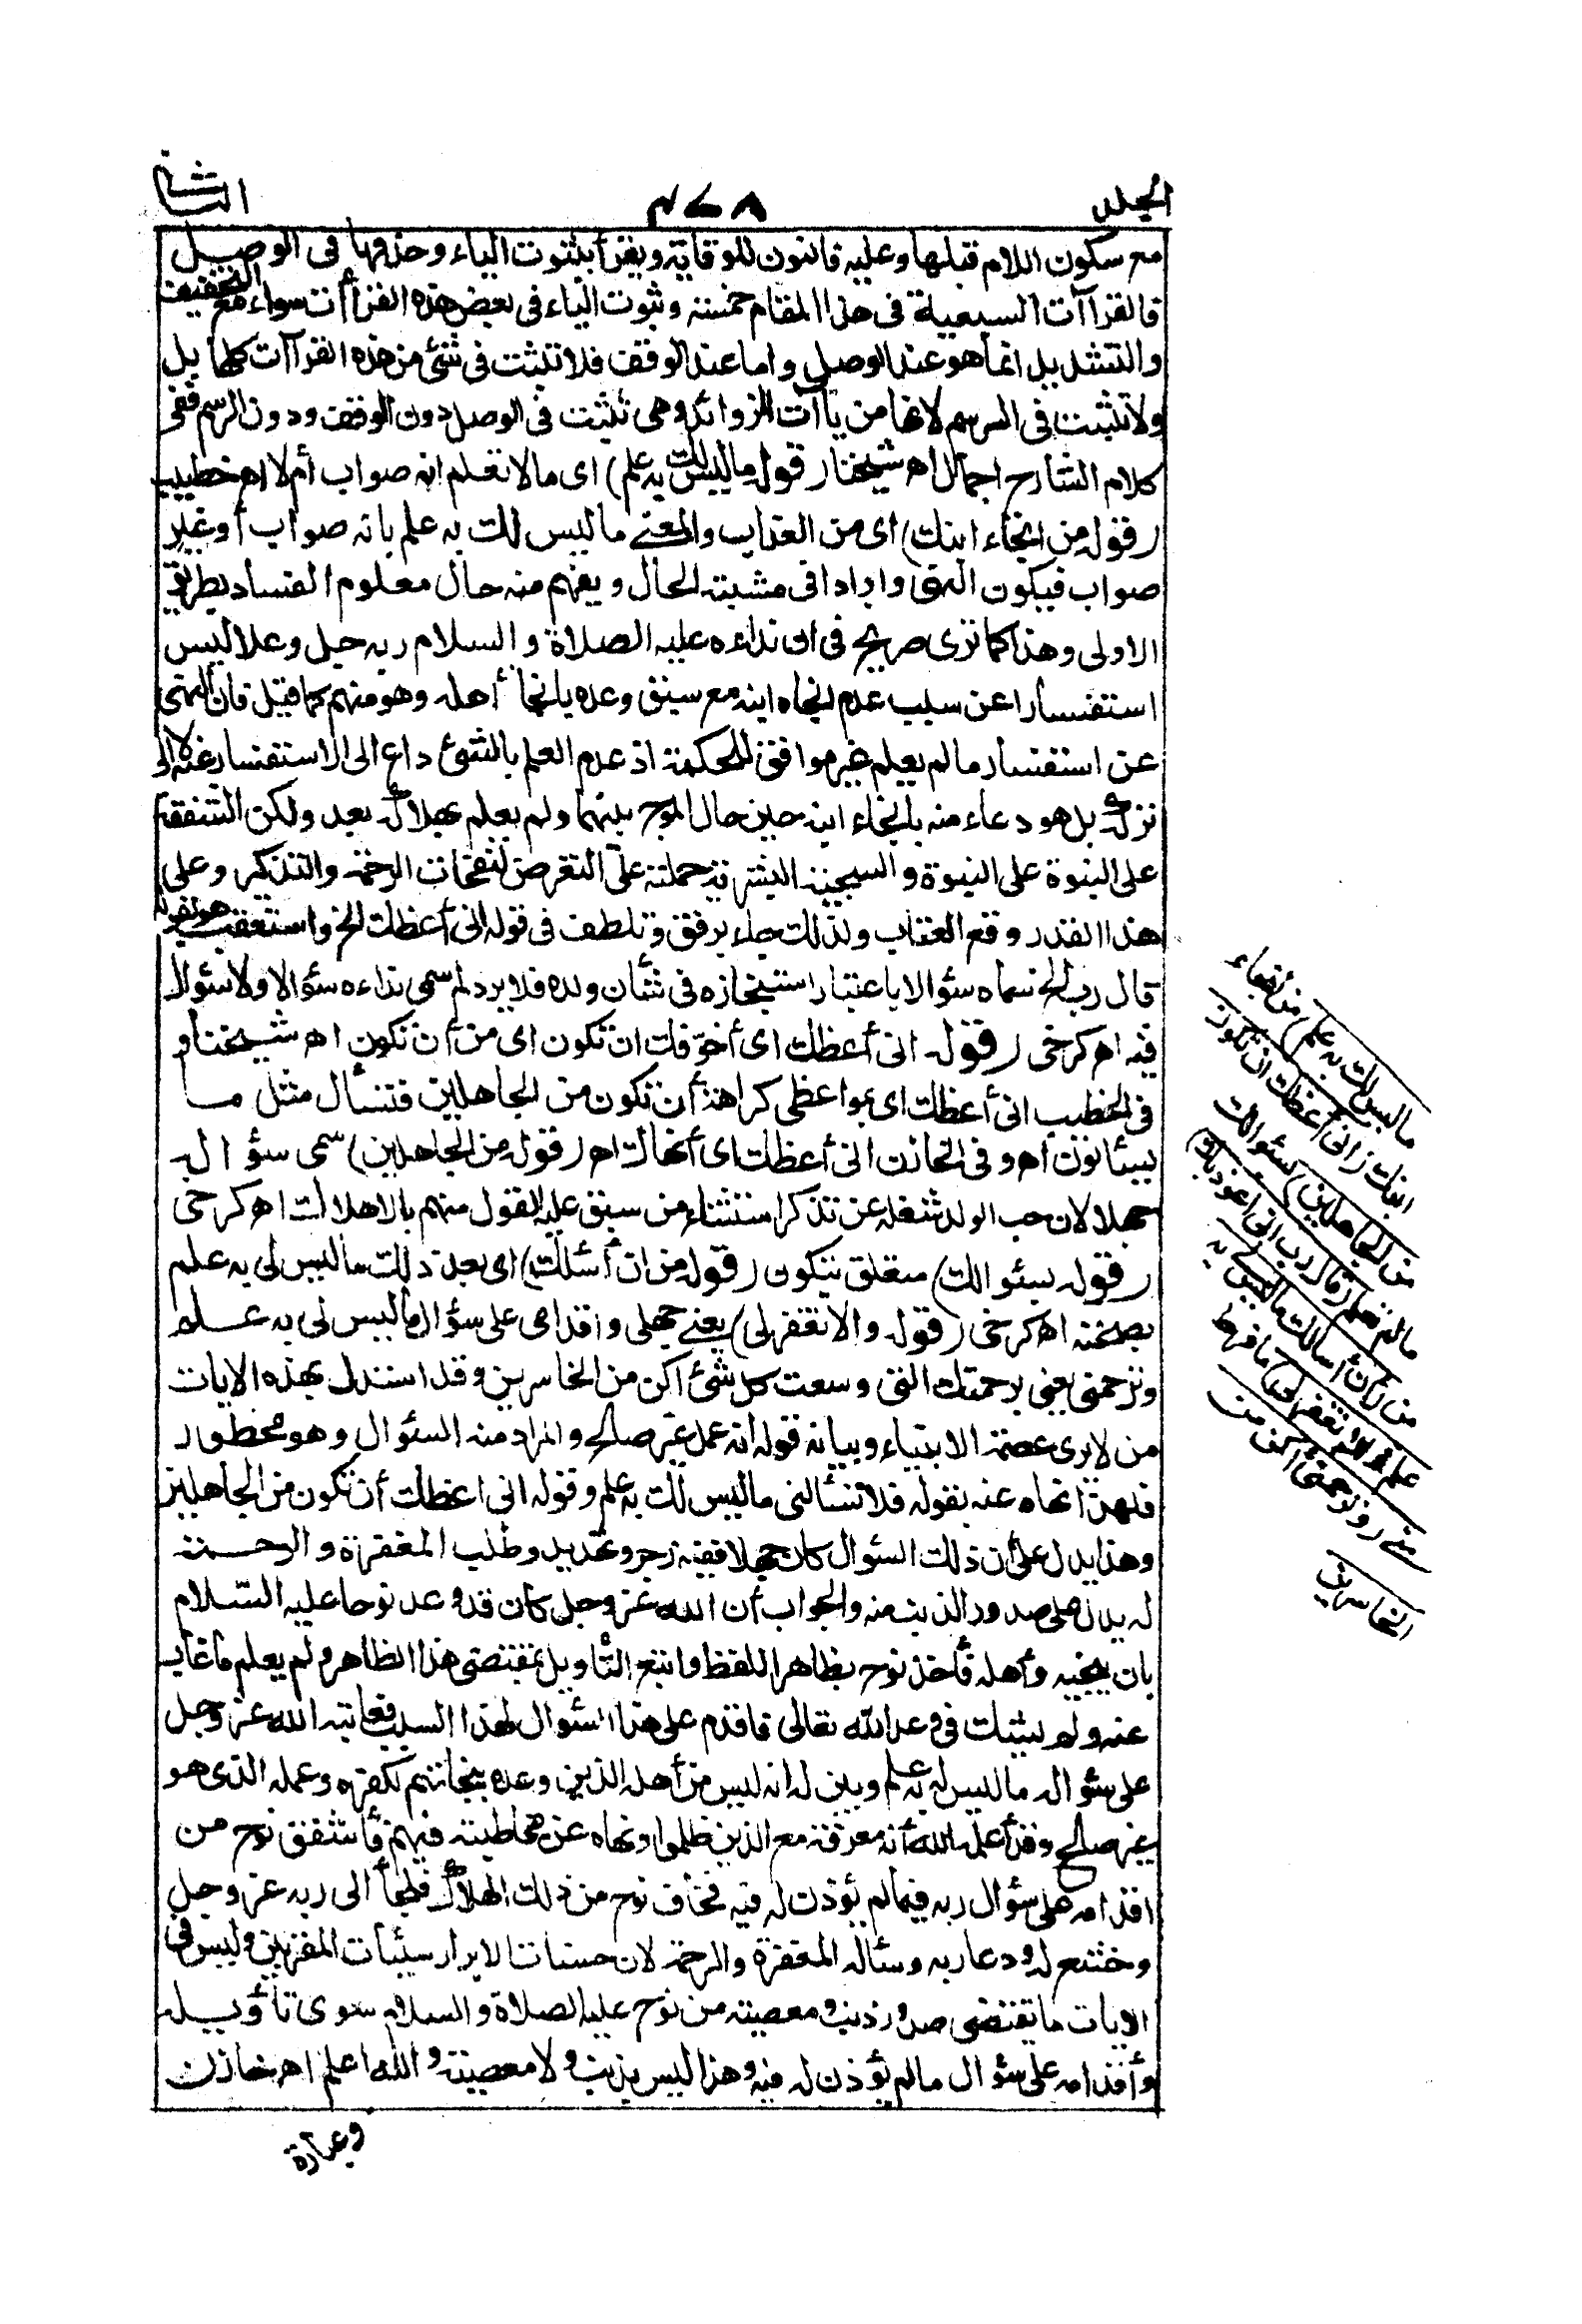 الجلد
٤٧٨
الثانى
مع سكون اللام قبلها وعليه فالنون للوقاية ويقرأ بثبوت الياء وحذفها فى الوصل
فالقراآت السبعية فى هذا المقام خمسة وثبوت الياء فى بعض هذه القراآت سواء مع التخفيف
والتشديد انما هو عند الوصل واما عند الوقف فلا تثبت فى شئ من هذه القراآت كلها بل
ولا تثبت فى الرسم لانها من ياآت الزوائد وهى تثبت فى الوصل دون الوقف ودون الرسم ففى
كلام الشارح اجمال اه شيخنا (قوله ما ليس لك به علم) اى ما لا تعلم انه صواب أم لا اه خطيب
(قوله من انجاء ابنك) اى من العذاب والمعنى ما ليس لك به علم بانه صواب أو غير
صواب فيكون النهى واردا فى مشتبه الحال ويفهم منه حال معلوم الفساد بطريق
الاولى وهذا كما ترى صريح فى ان نداءه عليه الصلاة والسلام ربه جل وعلا ليس
استفسارا عن سبب عدم انجاه ابنه مع سبق وعده بانجا أهله وهو منهم كما قيل فان النهى
عن استفسار ما لم يعلم غير موافق للحكمة اذ عدم العلم بالشئ داع الى الاستفسار عنه لا الى
تركه بل هو دعاء منه بانجاء ابنه حين حال الموج بينهما ولم يعلم بهلاكه بعد ولكن الشفقة
على البنوة والسجية البشرية حملته على التعرض لنفحات الرحمة والتذكير وعلى
هذا القدر وقع العتاب ولذلك جاء برفق وتلطف فى قوله انى أعظك الخ واستعقب هو بقوله
قال رب الخ سماه سؤالا باعتبار استنجازه فى شأن ولده فلا يرد لم سمى نداءه سؤالا ولا سؤال
فيه اه كرخى (قوله انى أعظك اى أخوّفك ان تكون اى من أن تكون اه شيخنا و
فى الخطيب انى أعظك اى بمواعظى كراهة أن تكون من الجاهلين فتسأل مثل ما
يسألون اه وفى الخازن انى أعظك اى أنهاك اه (قوله من الجاهلين) سمى سؤاله
جهلا لان حب الولد شغله عن تذكر استثناء من سبق عليه القول منهم بالاهلاك اه كرخى
(قوله بسئوالك) متعلق بتكون (قوله من ان أسئلك) اى بعد ذلك ما ليس لى به علم
بصحته اه كرخى (قوله والا تغفر لى) يعنى جهلى واقدامى على سؤال ما ليس لى به علم
وترحمنى يعنى برحمتك التى وسعت كل شئ اكن من الخاسرين وقد استدل بهذه الايات
من لا يرى عصمة الانبياء وبيانه قوله انه عمل غير صالح والمراد منه السئوال وهو محظور
فلهذا نهاه عنه بقوله فلا تسألنى ما ليس لك به علم وقوله انى اعظك أن تكون من الجاهلين
وهذا يدل على أن ذلك السئوال كان جهلا ففيه زجر وتهديد وطلب المغفرة والرحمة
له يدل على صدور الذنب منه والجواب أن الله عز وجل كان قد وعد نوحا عليه السلام
بان ينجيه وأهله فأخذ نوح بظاهر اللفظ واتبع التأويل بمقتضى هذا الظاهر ولم يعلم ما غاب
عنه ولم يشك فى وعد الله تعالى فاقدم على هذا السئوال لهذا السبب فعاتبه الله عز وجل
على سئواله ما ليس له به علم وبين له انه ليس من أهله الذين وعده بنجاتهم لكفره وعمله الذى هو
غير صالح وقد أعلمه الله أنه مغرقه مع الذين ظلموا ونهاه عن مخاطبته فيهم فأشفق نوح من
اقدامه على سئوال ربه فيما لم يؤذن له فيه فخاف نوح من ذلك الهلاك فلجأ الى ربه عز وجل
وخشع له ودعا ربه وسئاله المغفرة والرحمة لان حسنات الابرار سيئات المقربين وليس فى
الايات ما يقتضى صدور ذنب ومعصية من نوح عليه الصلاة والسلام سوى تأويله
وأقدامه على سئوال ما لم يؤذن له فيه وهذا ليس بذنب ولا معصية والله اعلم اه خازن
وعبارة
ما ليس لك به علم) من انجاء
ابنك (انى أعظك ان تكون
من الجاهلين) بسئوالك
ما لم تعلم (قال رب انى اعوذ بك)
من (ان أسالك ما ليس لى به
علم والا تغفر لى) ما فرط
منى (وترحمنى اكن من
الخاسرين